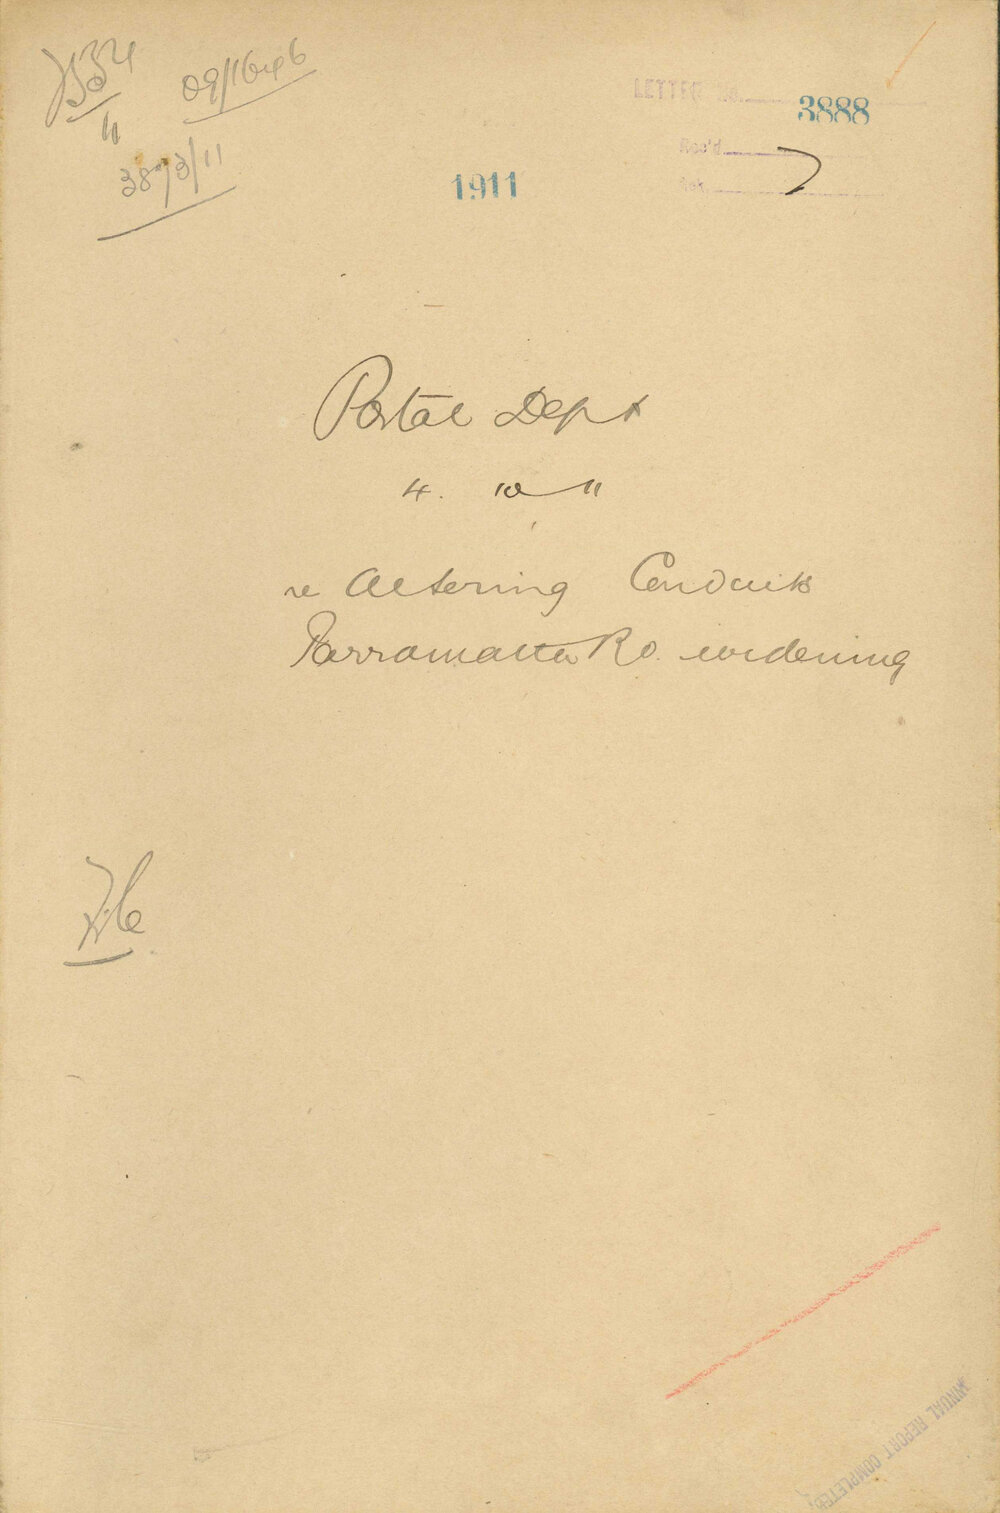 3873/11
LETTER No. 3888
Rec'd
Ack.
1911
Postal Dept
4. 10 11
re Altering Conduits
Parramatta Rd. widening
File
ANNUAL REPORT COMPLETED